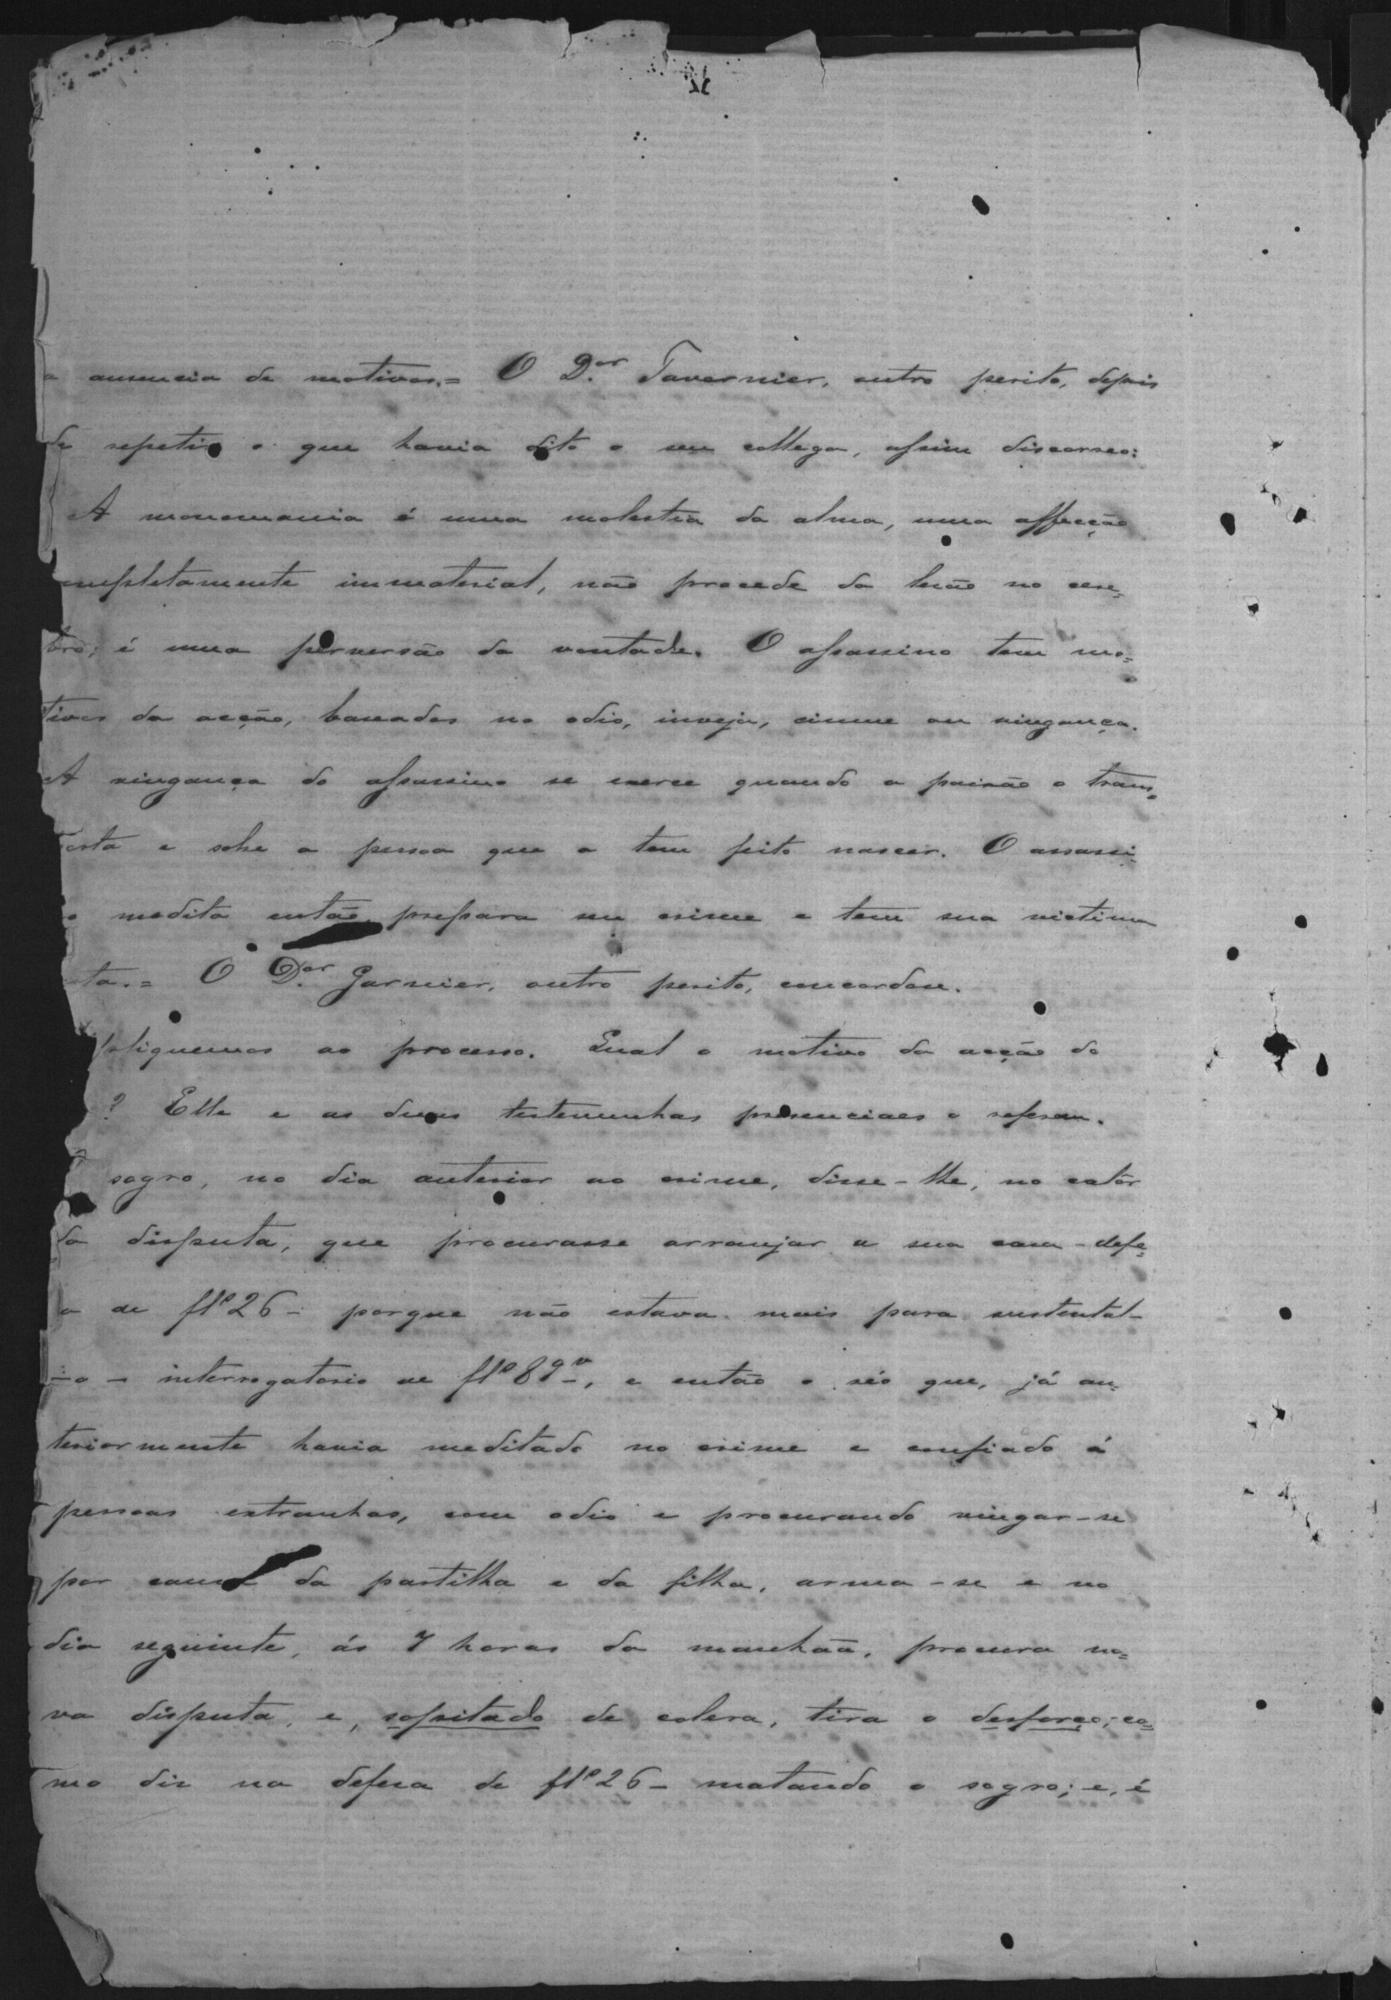 a ausencia de motivos.= O D.or Tavernier, outro perito, depois
de repetir o que havia dito o seu collega, assim discorreo:
A monomania é uma molestia da alma, uma affecção
completamente immaterial, não procede da lesão no cere-
bro; é uma perversão da vontade. O assassino tem mo-
tivos da acção, baseados no odio, inveja, ciume ou vingança.
A vingança do assassino se exerce quando a paixão o trans-
porta e sobre a pessoa que a tem feito nascer. O assassi-
o medita então, prepara seu crime e tem sua victima
ta.= O D.or Garnier, outro perito, concordou.
pliquemos ao processo. Qual o motivo da acção do
? Elle e as duas testemunhas presenciaes o referem.
sogro, no dia anterior ao crime, disse-lhe, no calor
da disputa, que procurasse arranjar a sua casa - defe-
a de fls 26 - porque não estava mais para sustental-
-o - interrogatorio de fls 89v, e então o réo que, já an-
teriormente havia meditado no crime e confiado á
pessoas extranhas, com odio e procurando vingar-se
por causa da partilha e da filha, arma-se e no
dia seguinte, ás 7 horas da manhãa, procura no-
va disputa, e, sopitado de colera, tira o desforço, co-
mo diz na defesa de fls 26 - matando o sogro; e, é